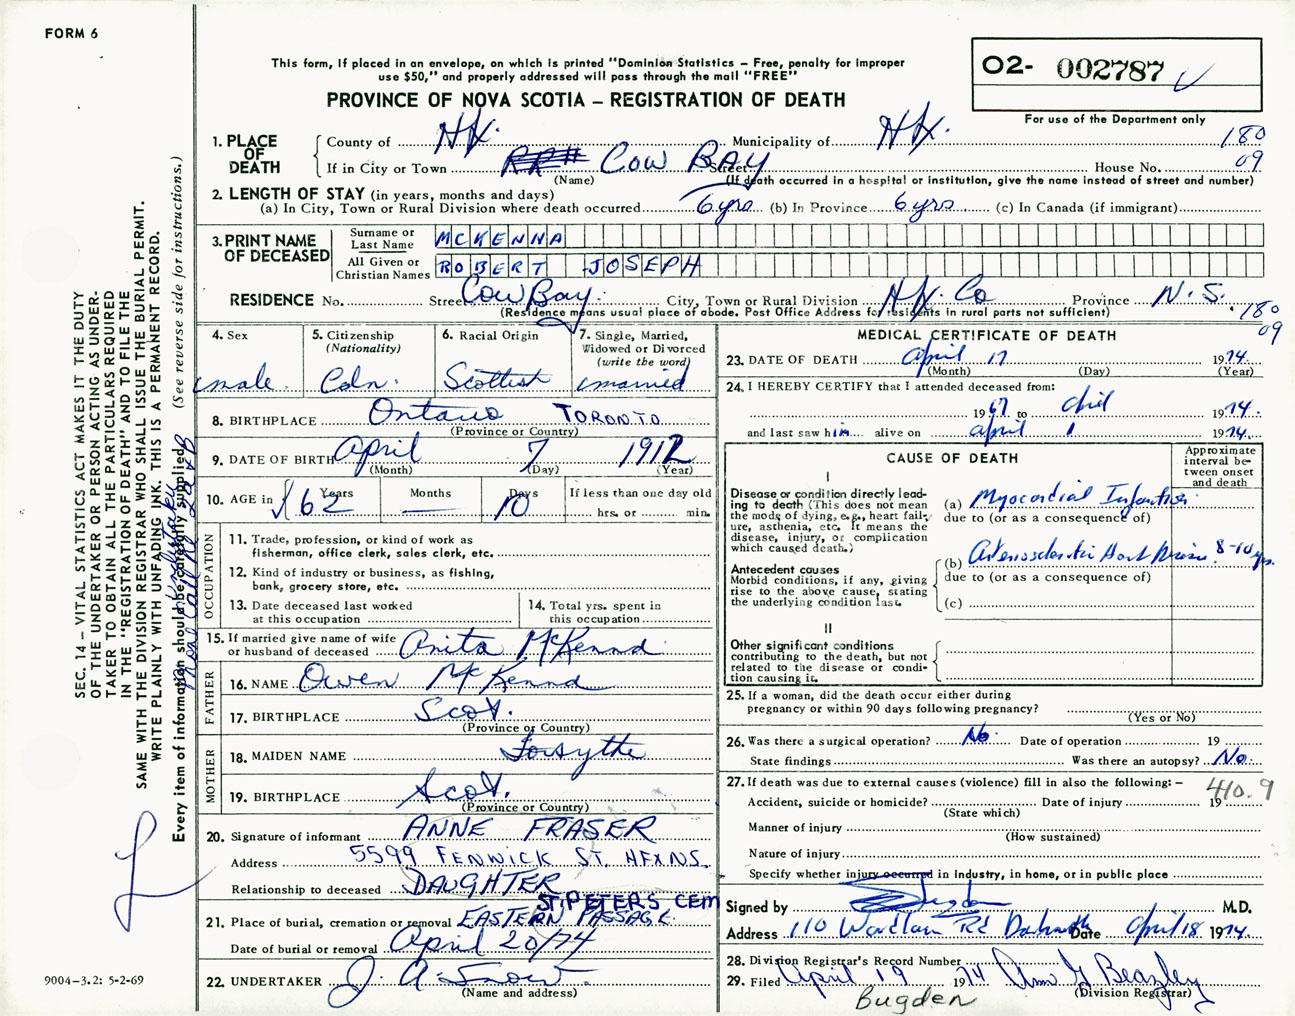 FORM 6
This form, if placed in an envelope, on which is printed "Dominion Statistics – Free, penalty for improper
use $50," and properly addressed will pass through the mail "FREE"
PROVINCE OF NOVA SCOTIA – REGISTRATION OF DEATH
02- 002787
For use of the Department only
1. PLACE OF DEATH
County of Hfx. Municipality of Hfx.
180
09
If in City or Town Cow Bay Street House No.
(Name) (If death occurred in a hospital or institution, give the name instead of street and number)
2. LENGTH OF STAY (in years, months and days)
(a) In City, Town or Rural Division where death occurred 6 yrs (b) In Province 6 yrs (c) In Canada (if immigrant)
3. PRINT NAME OF DECEASED
Surname or Last Name MCKENNA
All Given or Christian Names ROBERT JOSEPH
RESIDENCE No. Street Cow Bay. City, Town or Rural Division Hfx. Co Province N.S.
(Residence means usual place of abode. Post Office Address for residents in rural parts not sufficient)
180
09
4. Sex male.
5. Citizenship (Nationality) Cdn.
6. Racial Origin Scottish
7. Single, Married, Widowed or Divorced (write the word) married
8. BIRTHPLACE Ontario TORONTO
(Province or Country)
9. DATE OF BIRTH April 7 1912
(Month) (Day) (Year)
10. AGE in 62 Years — Months 10 Days If less than one day old
hrs. or min.
OCCUPATION
11. Trade, profession, or kind of work as
fisherman, office clerk, sales clerk, etc.
12. Kind of industry or business, as fishing,
bank, grocery store, etc.
13. Date deceased last worked
at this occupation
14. Total yrs. spent in
this occupation
15. If married give name of wife
or husband of deceased Anita McKenna
FATHER
16. NAME Owen McKenna
17. BIRTHPLACE Scot.
(Province or Country)
MOTHER
18. MAIDEN NAME Forsythe
19. BIRTHPLACE Scot.
(Province or Country)
20. Signature of informant ANNE FRASER
Address 5599 FENWICK ST. HFX NS.
Relationship to deceased DAUGHTER
ST. PETERS CEM
21. Place of burial, cremation or removal EASTERN PASSAGE
Date of burial or removal April 20/74
22. UNDERTAKER J. A. Snow.
(Name and address)
MEDICAL CERTIFICATE OF DEATH
23. DATE OF DEATH April 17 1974.
(Month) (Day) (Year)
24. I HEREBY CERTIFY that I attended deceased from:
1967 to April 1974.
and last saw him alive on April 1 1974.
CAUSE OF DEATH
Approximate interval between onset and death
I
Disease or condition directly leading to death (This does not mean the mode of dying, e.g., heart failure, asthenia, etc. It means the disease, injury, or complication which caused death.)
(a) Myocardial Infarction
due to (or as a consequence of)
Antecedent causes
Morbid conditions, if any, giving rise to the above cause, stating the underlying condition last.
(b) Arteriosclerotic Heart Disease. 8-10 yrs.
due to (or as a consequence of)
(c)
II
Other significant conditions
contributing to the death, but not related to the disease or condition causing it.
25. If a woman, did the death occur either during
pregnancy or within 90 days following pregnancy?
(Yes or No)
26. Was there a surgical operation? No. Date of operation 19
State findings Was there an autopsy? No.
27. If death was due to external causes (violence) fill in also the following: –
410.9
Accident, suicide or homicide? Date of injury 19
(State which)
Manner of injury
(How sustained)
Nature of injury
Specify whether injury occurred in industry, in home, or in public place
Signed by M.D.
Address 110 Rd Date April 18 1974.
28. Division Registrar's Record Number
29. Filed April 19 1974 Ann G Beazley
(Division Registrar)
Bugden
SEC. 14 – VITAL STATISTICS ACT MAKES IT THE DUTY
OF THE UNDERTAKER OR PERSON ACTING AS UNDER-
TAKER TO OBTAIN ALL THE PARTICULARS REQUIRED
IN THE "REGISTRATION OF DEATH" AND TO FILE THE
SAME WITH THE DIVISION REGISTRAR WHO SHALL ISSUE THE BURIAL PERMIT.
WRITE PLAINLY WITH UNFADING INK. THIS IS A PERMANENT RECORD.
Every item of information should be carefully supplied. (See reverse side for instructions.)
9004-3.2: 5-2-69